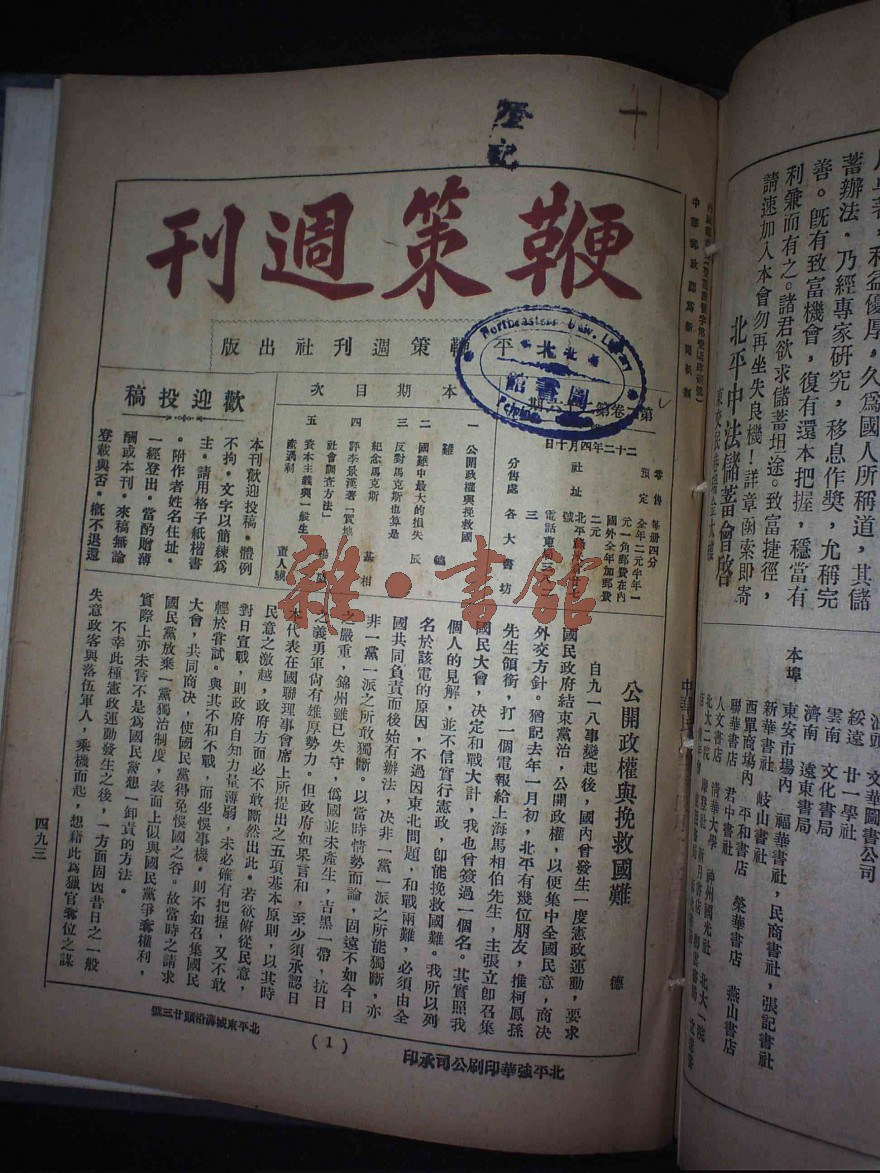 登記
鞭策週刊
平鞭策週刊社出版
第二卷第二十六期
二十二年四月十日
零售 每册四分
預定 全年二元半年一
元一角郵費在內
國外全年加郵費
二元
社址
號
電話東局三
三
分售處 各大書坊
本期目次
一 公開政權與挽救國
難 德
二 國難中最大的損失 辰
三 反對馬克斯也算是
紀念馬克斯 基相
四 評李景漢著「實地
社會調查方法」
五 資本主義與一般生
產過剩 董人驥
歡迎投稿
本刊歡迎投稿。體例
不拘。文字以簡練為
主。請用格子紙楷書
。附作者姓名住址。
一經登出。當酌贈薄
酬或本刊。來稿無論
登載與否。概不退還
公開政權與挽救國難
德
自九一八事變起後，國內曾發生一度憲政運動，要求
國民政府結束黨治，公開政權，以便集中全國民意，商決
外交方針。猶記去年一月初，北平有幾位朋友，推柯鳳孫
先生領銜，打一個電報給上海馬相伯先生，主張立卽召集
國民大會，決定和戰大計，我也曾簽過一個名。其實照我
個人的見解，並不信實行憲政，卽能挽救國難。我所以列
名於該電的原因，不過因東北問題，和戰兩難，必須由全
國共同負責而後始有辦法，決非一黨一派之所能獨斷，亦
非一黨一派之所敢獨斷。以當時情勢而論，固遠不如今日
之嚴重，錦州雖已失守，僞國並未產生，吉黑一帶，抗日
之義勇軍尚有雄厚勢力。但政府如果言和，至少須承認日
本代表在國聯理事會席上所提出之五項基本原則，以其時
民意之激越，政府方面必不敢斷然出此。若欲俯從民意，
對日宣戰，則政府自知力量薄弱，未必確有把握，又不敢
輕於嘗試。與其不和不戰，而坐悞事機，則不如召集國民
大會，共同商決，使國民黨得免悞國之咎。故當時之請求
國民黨放棄一黨獨治制度，表面上似與國民黨爭奪權利，
實際上亦未嘗不是爲國民黨想一卸責的方法。
不幸此種憲政運動發生之後，一方面固因昔日之一般
失意政客與落伍軍人，乘機而起，想藉此為獵官奪位之謀
四九三
(1)
北平東城溝沿頭廿三號
北平強華印刷公司承印
雜·書館
Northeastern Univ. Library
圖書館
Peiping
蓄辦法。乃經專家研究，移息作獎，允稱完
善。既有致富機會，復有還本把握，穩當有
利兼而有之。諸君欲求儲蓄坦途。致富捷徑，
請速加入本會勿再坐失良機！詳章函索即寄
北平中法儲蓄會啓
文華圖書公司
綏遠 廿一學社
雲南 文化書局
濟南 遠東書局
本埠
東安市場內 福華書社，民商書社，張記書社
新華書社 岐山書社
西單商場內 平和書店 榮華書店 燕山書店
聯華書店 君中書社
人文書店 清華大學 神州國光社 北大一院
北大二院 新月書店